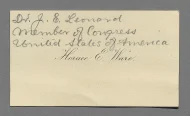 Dr. J. E. Leonard
Member of Congress
United States of America
Horace E. Ware